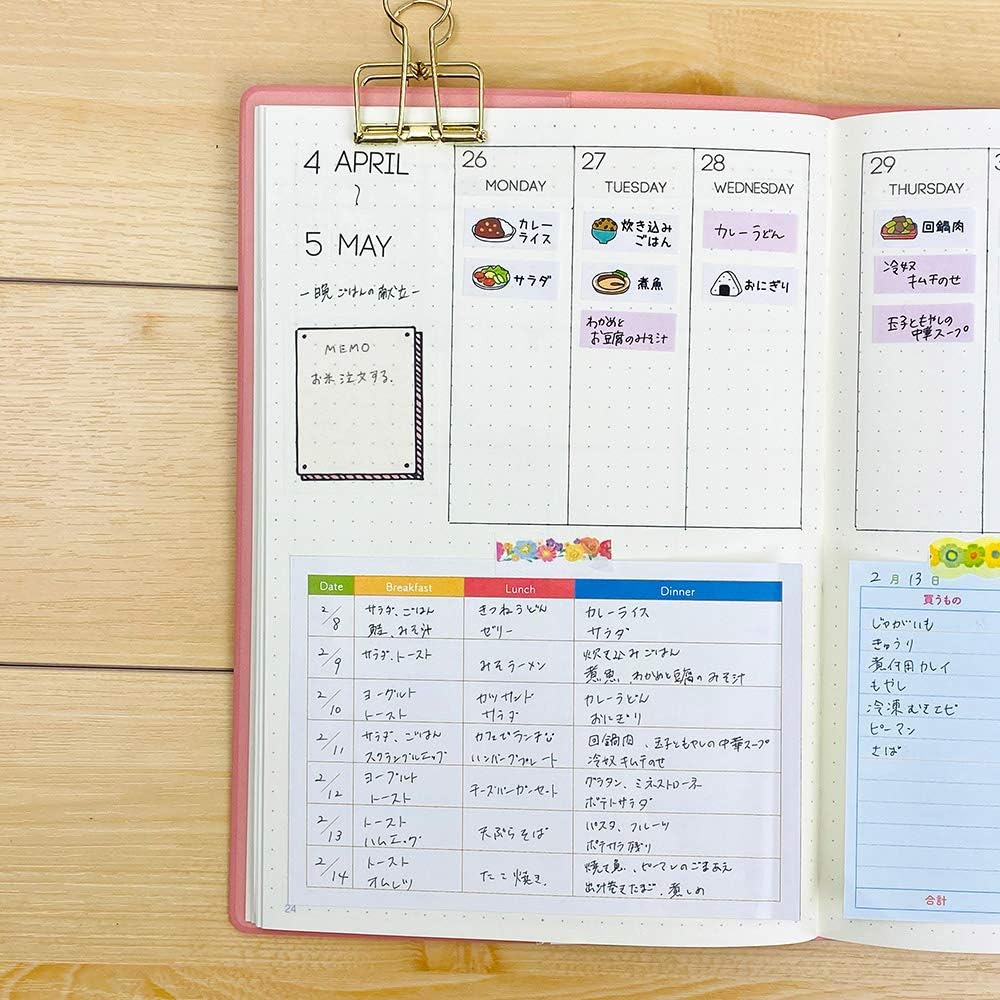 4 APRIL
〜
5 MAY
ー晩ごはんの献立ー
MEMO
お米注文する.
26
MONDAY
カレー
ライス
サラダ
27
TUESDAY
炊き込み
ごはん
煮魚
わかめと
お豆腐のみそ汁
28
WEDNESDAY
カレーうどん
おにぎり
29
THURSDAY
回鍋肉
冷奴
キムチのせ
玉子ともやしの
中華スープ
Date Breakfast Lunch Dinner
2/8
サラダ、ごはん
鮭、みそ汁
きつねうどん
ゼリー
カレーライス
サラダ
2/9
サラダ、トースト
みそラーメン
炊き込みごはん
煮魚 わかめと豆腐のみそ汁
2/10
ヨーグルト
トースト
カツサンド
サラダ
カレーうどん
おにぎり
2/11
サラダ、ごはん
スクランブルエッグ
カフェでランチ
ハンバーグプレート
回鍋肉、玉子ともやしの中華スープ
冷奴キムチのせ
2/12
ヨーグルト
トースト
チーズバーガーセット
グラタン、ミネストローネ
ポテトサラダ
2/13
トースト
ハムエッグ
天ぷらそば
パスタ、フルーツ
ポテサラ残り
2/14
トースト
オムレツ
たこ焼き
焼き魚、ピーマンのごまあえ
出汁巻きたまご、煮しめ
24
2月13日
買うもの
じゃがいも
きゅうり
煮付用カレイ
もやし
冷凍むきエビ
ピーマン
さば
合計